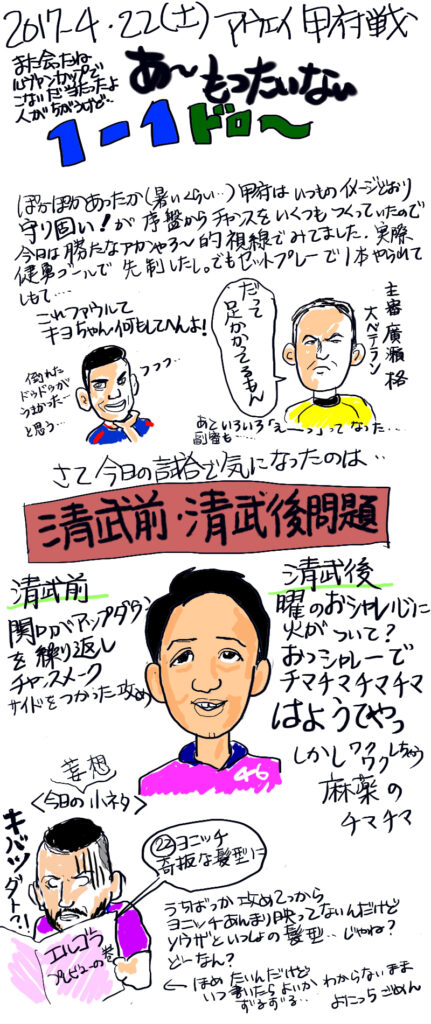 2017.4.22(土)アウェイ甲府戦
また会ったね
ルヴァンカップで
こないだ当たったよ
人がちがうけど…
あ〜もったいない
1-1ドロ〜
ぽかぽかあったか(暑いくらい…)甲府はいつものイメージどおり
守り固い!が序盤からチャンスをいくつもつくっていたので
今日は勝たなアカンやろ〜的視線でみてました.実際
健勇ゴールで先制したし。でもセットプレーで1本やられて
しもて…
これファウルて
キヨちゃん何もしてへんよ!
だって
足かかってるもん
主審廣瀬格
大ベテラン
倒れた
ドゥドゥが
うまかった…
と思う…
フフフ…
あといろいろ「えーっ」ってなった…
副審も…
さて今日の試合で気になったのは‥
清武前・清武後問題
清武前
関口がアップダウン
を繰り返し
チャンスメーク
サイドをつかった攻め
清武後
曜のおシャレ心に
火がついて?
おっシャレーで
チマチマチマチマ
はようてやっ
しかしワクワクしちゃう
麻薬の
チマチマ
46
妄想
<今日の小ネタ>
キバツダト?!
㉓ヨニッチ
奇抜な髪型に
エルゴラ
プレビューの巻
うちばっか攻めてっから
ヨニッチあんまり映ってないんだけど
ソウザといっしょの髪型‥じゃね?
どーなん?
← ほめたいんだけど
いつ書いたらよいかわからないまま
ずるずる‥ よにっちごめん